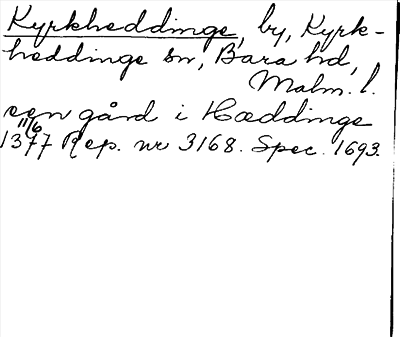 Kyrkheddinge, by, Kyrk-
heddinge sn, Bara hd,
Malm. l.
een gård i Hæddinge
11/6
1377 Rep. nr 3168. Spec. 1693.